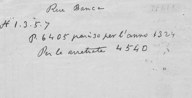 Rue Banca
# 1.3.5.7
P. 6405 parigo per l'anno 1324
Per le arretrate 4540